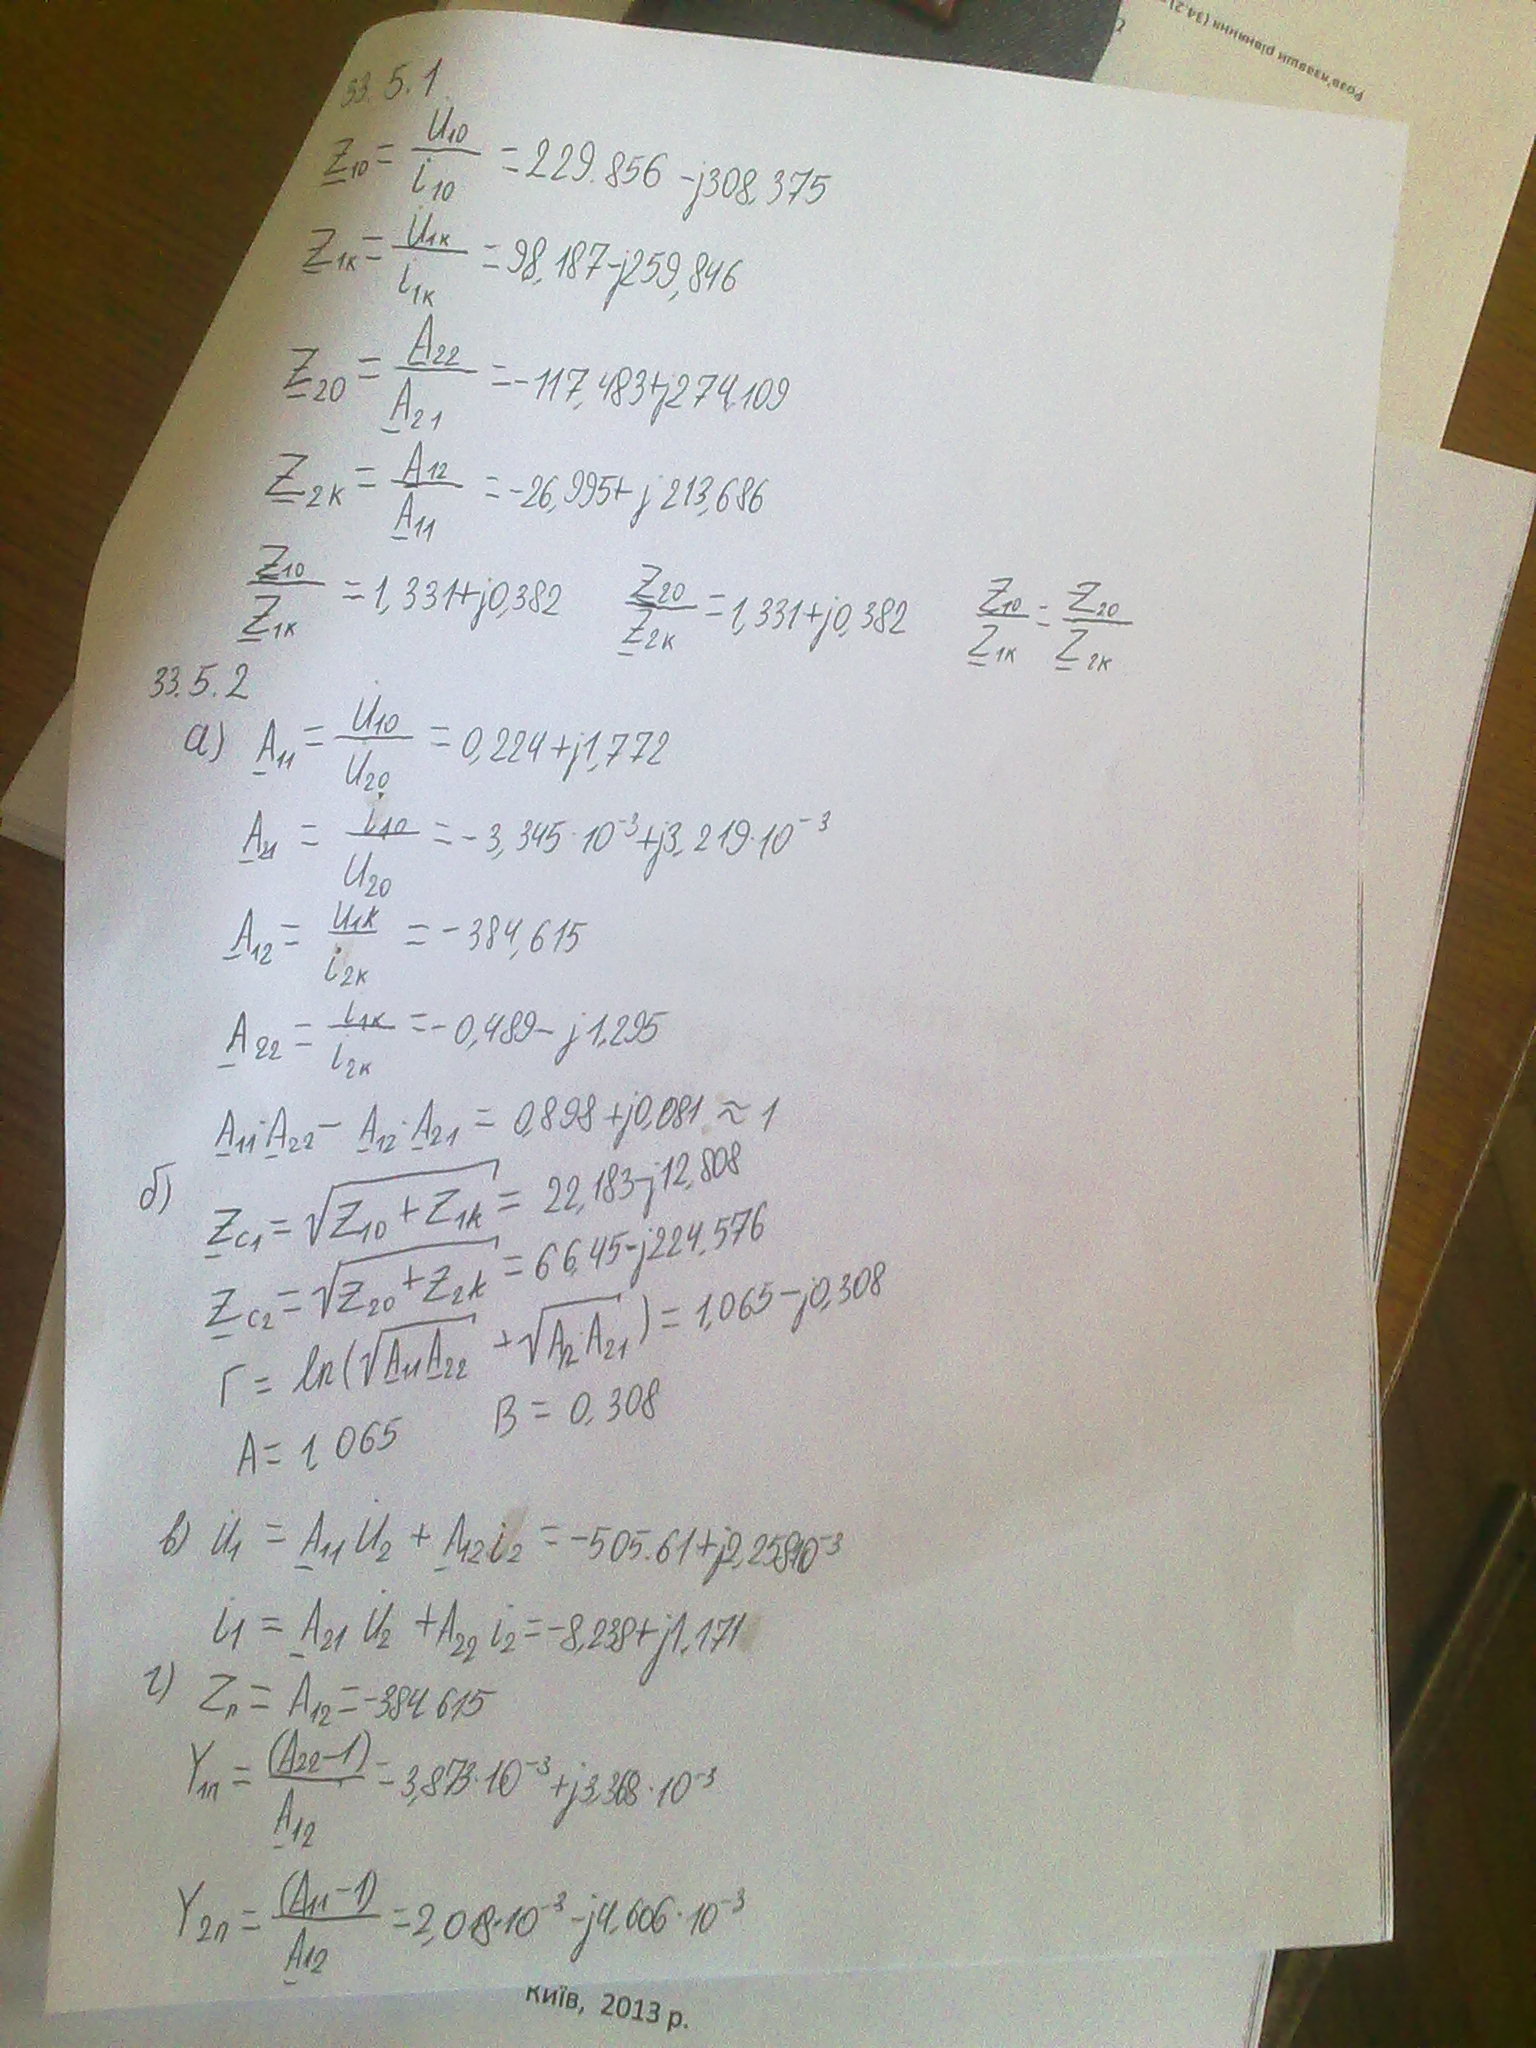 Розв'язавши рівняння (34.2)
33.5.1
Z̲₁₀ = U̇₁₀ / i̇₁₀ = 229.856 - j308,375
Z̲₁ₖ = U̇₁ₖ / i̇₁ₖ = 98,187 - j259,846
Z̲₂₀ = A̲₂₂ / A̲₂₁ = -117,483 + j274,109
Z̲₂ₖ = A̲₁₂ / A̲₁₁ = -26,995 + j213,686
Z̲₁₀ / Z̲₁ₖ = 1,331 + j0,382 Z̲₂₀ / Z̲₂ₖ = 1,331 + j0,382 Z̲₁₀ / Z̲₁ₖ = Z̲₂₀ / Z̲₂ₖ
33.5.2
а) A̲₁₁ = U̇₁₀ / U̇₂₀ = 0,224 + j1,772
A̲₂₁ = i̇₁₀ / U̇₂₀ = -3,345·10⁻³ + j3,219·10⁻³
A̲₁₂ = U̇₁ₖ / i̇₂ₖ = -384,615
A̲₂₂ = i̇₁ₖ / i̇₂ₖ = -0,489 - j1,295
A̲₁₁·A̲₂₂ - A̲₁₂·A̲₂₁ = 0,898 + j0,081 ≈ 1
б) Z̲c₁ = √(Z₁₀ + Z₁ₖ) = 22,183 - j12,808
Z̲c₂ = √(Z₂₀ + Z₂ₖ) = 66,45 - j224,576
Г = ln(√(A̲₁₁A̲₂₂) + √(A₁₂A₂₁)) = 1,065 - j0,308
A = 1,065 B = 0,308
в) U̇₁ = A̲₁₁U̇₂ + A̲₁₂i̇₂ = -505.61 + j2,258·10⁻³
i̇₁ = A̲₂₁U̇₂ + A₂₂i̇₂ = -8,238 + j1,171
г) Zп = A₁₂ = -384,615
Y₁п = (A₂₂ - 1) / A̲₁₂ = 3,873·10⁻³ + j3,368·10⁻³
Y₂п = (A₁₁ - 1) / A̲₁₂ = 2,018·10⁻³ - j4,606·10⁻³
Київ, 2013 р.